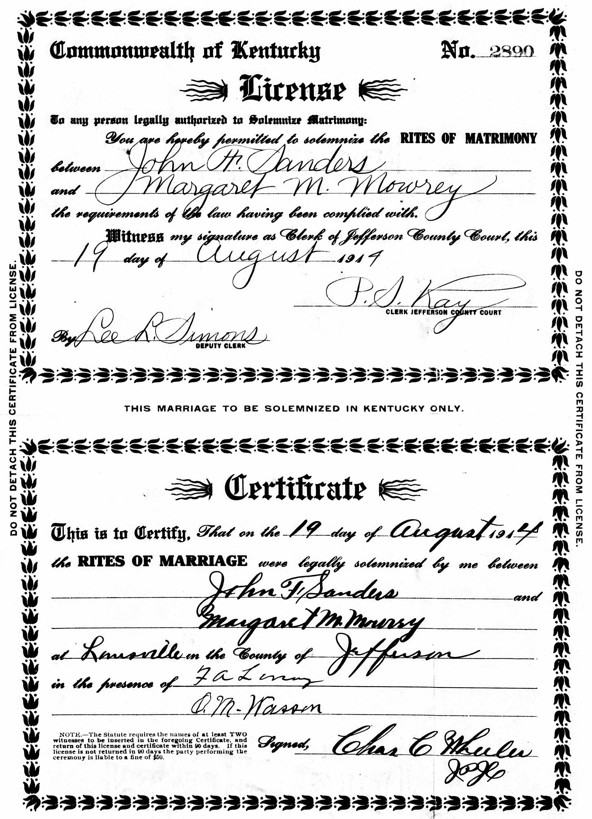 Commonwealth of Kentucky No. 2890
License
To any person legally authorized to Solemnize Matrimony:
You are hereby permitted to solemnize the RITES OF MATRIMONY
between John H. Sanders
and Margaret M. Mowrey
the requirements of the law having been complied with.
Witness my signature as Clerk of Jefferson County Court, this
19 day of August 1914
P. S. Ray
CLERK JEFFERSON COUNTY COURT
By Lee L. Simons
DEPUTY CLERK
DO NOT DETACH THIS CERTIFICATE FROM LICENSE.
DO NOT DETACH THIS CERTIFICATE FROM LICENSE.
THIS MARRIAGE TO BE SOLEMNIZED IN KENTUCKY ONLY.
Certificate
This is to Certify, That on the 19 day of August 1914
the RITES OF MARRIAGE were legally solemnized by me between
John F. Sanders and
Margaret M. Mowrry
at Louisville in the County of Jefferson
in the presence of F A
O. M. Wasson
NOTE.—The Statute requires the names of at least TWO
witnesses to be inserted in the foregoing Certificate, and
return of this license and certificate within 90 days. If this
license is not returned in 90 days the party performing the
ceremony is liable to a fine of $50.
Signed, Chas C Wheeler